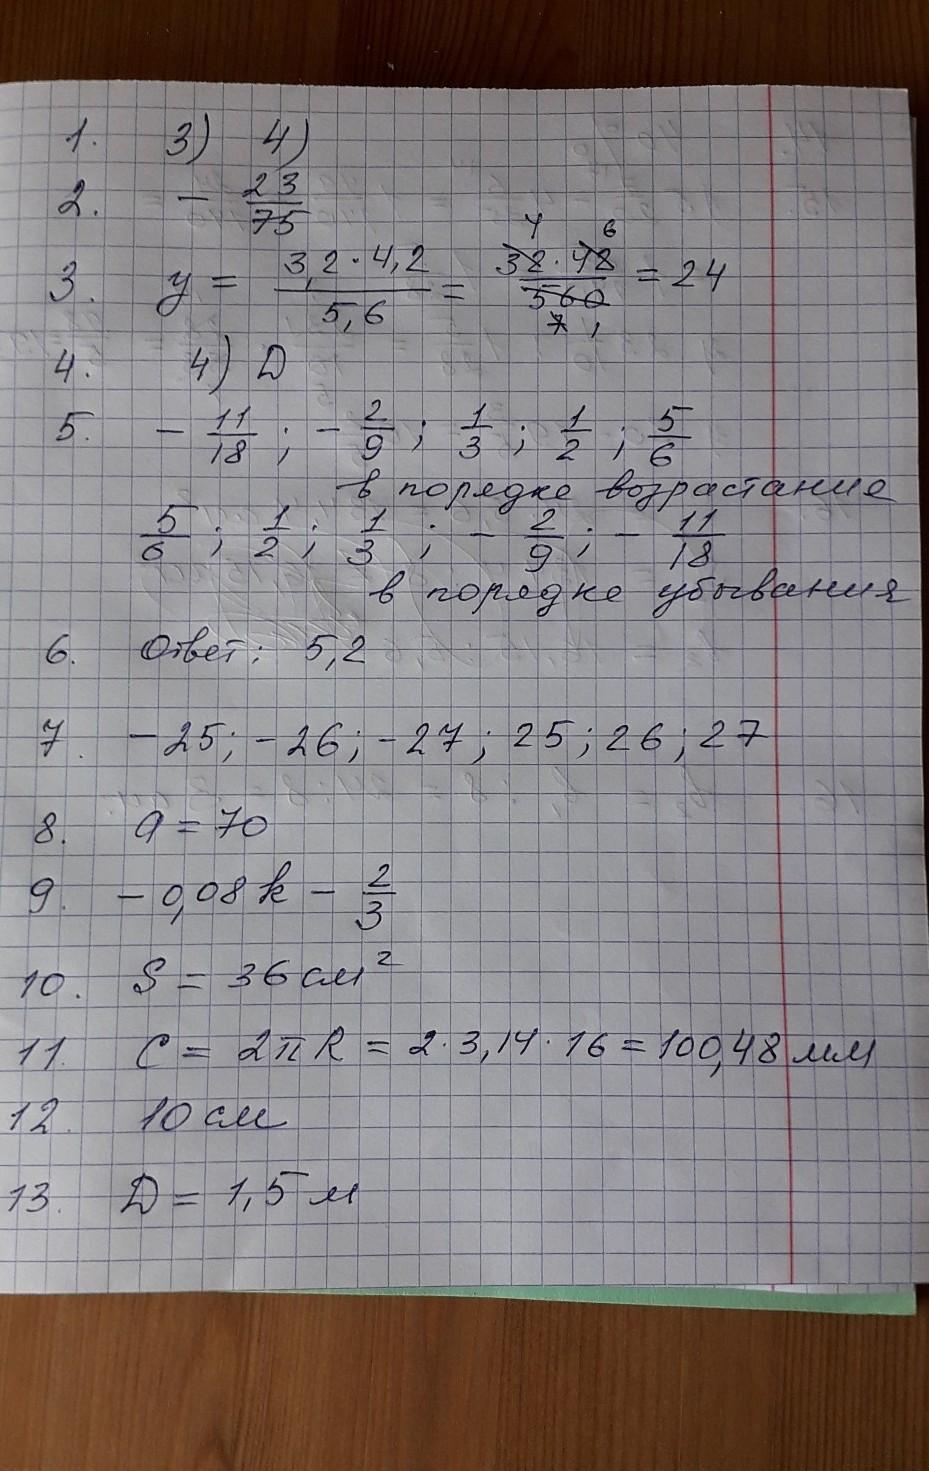 1. 3) 4)
2. - 23/75
3. y = 3,2·4,2/5,6 = 32·42/560 = 24
4 6
7 1
4. 4) D
5. - 11/18 ; - 2/9 ; 1/3 ; 1/2 ; 5/6
в порядке возрастание
5/6 ; 1/2 ; 1/3 ; - 2/9 ; - 11/18
в порядке убывания
6. Ответ: 5,2
7. -25; -26; -27; 25; 26; 27
8. a = 70
9. - 0,08k - 2/3
10. S = 36 см²
11. C = 2πR = 2·3,14·16 = 100,48 мм
12. 10 см
13. D = 1,5 м